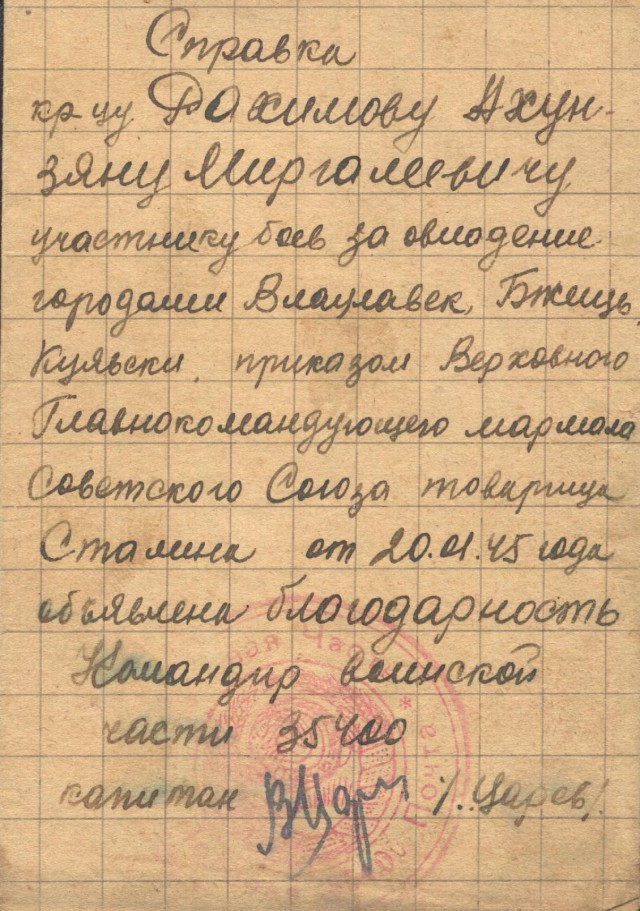 Справка
кр-цу Рахимову Ахун-
зяну Миргалеевичу
участнику боев за овладение
городами Влацлавек, Бжищь,
Кульски, приказом Верховного
Главнокомандующего маршала
Советского Союза товарища
Сталина от 20.01.45 года
объявлена благодарность
Командир воинской
части 35400
капитан /. Царев/.